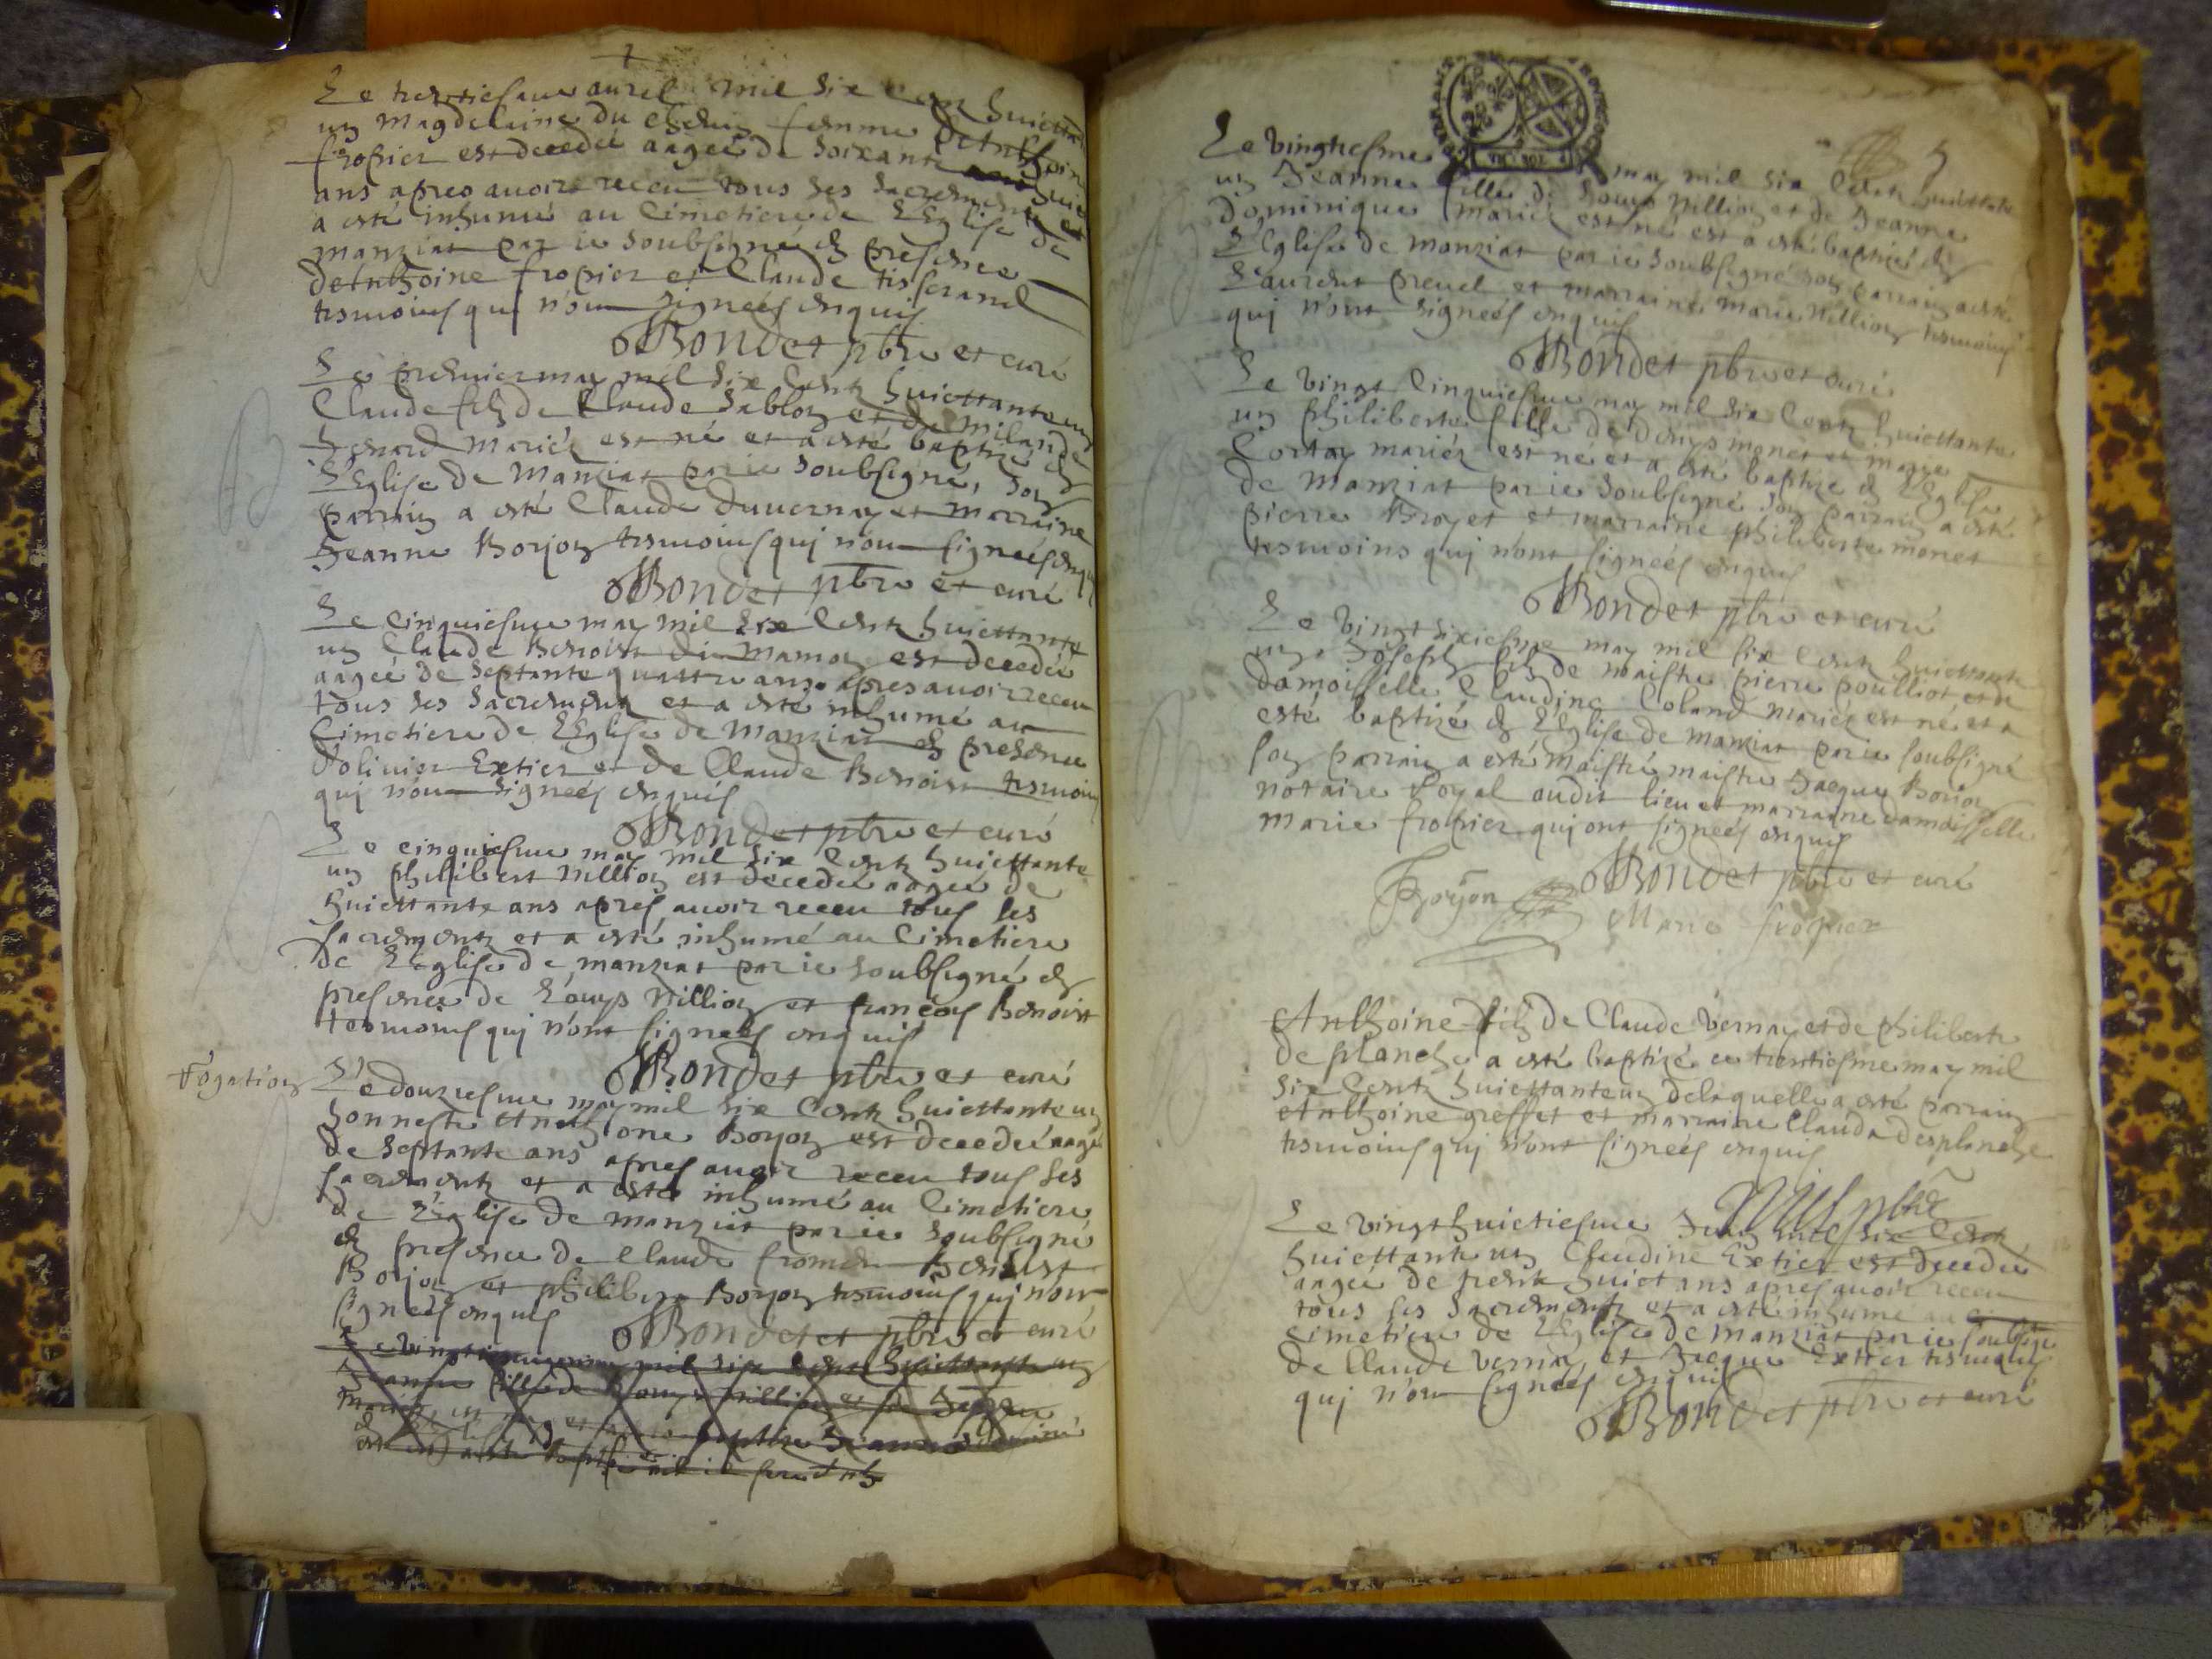 Le trentiesme auril mil six centz huictta
un Magdelaine du femme Dethoine
fropier est decedée aagée de soixante huict
ans apres auoir receu tous ses sacrements et
a esté inhumé au Cimetiere de L'Eglise de
manziat par ie soubsigné en presence
dethoine fropier et Claude tisserand
tesmoins qui n'ont signeés enquis
Bondet pbre et curé
Le premier may mil six centz huicttante un
Claude filz de Claude Sablon et de
mariéz est né et a esté baptizé en
L'Eglise de Manziat par ie soubsigné, son
parrain a esté Claude Duuernay et marraine
Jeanne Boyon tesmoins qui n'ont signeés enquis
Bondet pbre et curé
Le cinquiesme may mil six centz huicttante
un Claude Benoist de mamon est decedée
aagée de septante quattre ans apres auoir receu
tous ses sacrementz et a esté inhumé au
Cimetiere de L'Eglise de Manziat en presence
d'oliuier Extier et de Claude Benoist tesmoins
qui n'ont signeés enquis
Bondet pbre et curé
Le cinquiesme may mil six centz huicttante
un philibert Nillion est decedée aagée de
huicttante ans apres auoir receu tous ses
sacrementz et a esté inhumé au Cimetiere
de L'Eglise de manziat par ie soubsigné en
presence de Louys Nillion et françoys Benoist
tesmoins qui n'ont signeés enquis
Bondet pbre et curé
fogation
Le douziesme may mil six centz huicttante un
honneste Boyon est decedée aagé
de septante ans apres auoir receu tous ses
sacrementz et a esté inhumé au Cimetiere
de L'Eglise de manziat par ie soubsigné
en presence de Claude froment Benoist
Boyon et philibert Boyon tesmoins qui n'ont
signeés enquis
Bondet pbre et curé
may mil six centz huicttante un
Jeanne fille de Louys Nillion et de Jeanne
baptizé
5
Le vingtiesme may mil six centz huicttante
un Jeanne fille de Louys Nillion et de Jeanne
dominique mariéz est né est a esté baptizé en
L'Eglise de Manziat par ie soubsigné son parrain a esté
Laurent preuel et marraine marie Nillion tesmoins
qui n'ont signeés enquis
Bondet pbre et curé
Le vingt cinquiesme may mil six centz huicttante
un philiberte fille de denys monet et marie
Cortay mariéz est né et a esté baptizé en L'Eglise
de Manziat par ie soubsigné son parrain a esté
pierre Broyet et marraine philiberte monet
tesmoins qui n'ont signeés enquis
Bondet pbre et curé
Le vingt sixiesme may mil six centz huicttante
un Joseph filz de maistre pierre poulliot et de
damoisselle Claudine Coland mariéz est né et a
esté baptizé en L'Eglise de Manziat par ie soubsigné
son parrain a esté maistre maistre Jacque Boyon
notaire Royal audit lieu et marraine damoisselle
marie fropier qui ont signeés enquis
Bondet pbre et curé
Boyon
Marie fropier
Anthoine filz de Claude vernay et de philiberte
desplanche a esté baptizé ce trentiesme may mil
six centz huicttante un delaquelle a esté parrain
Anthoine greffet et marraine Clauda desplanche
tesmoins qui n'ont signeés enquis
pbre
Le vingt huictiesme Juin mil six centz
huicttante un Claudine Extier est decedée
aagée de trente huict ans apres auoir receu
tous ses sacrementz et a esté inhumé au
Cimetiere de L'Eglise de manziat par ie soubsigné
de Claude vernay et Jacque Extier tesmoins
qui n'ont signeés enquis
Bondet pbre et curé